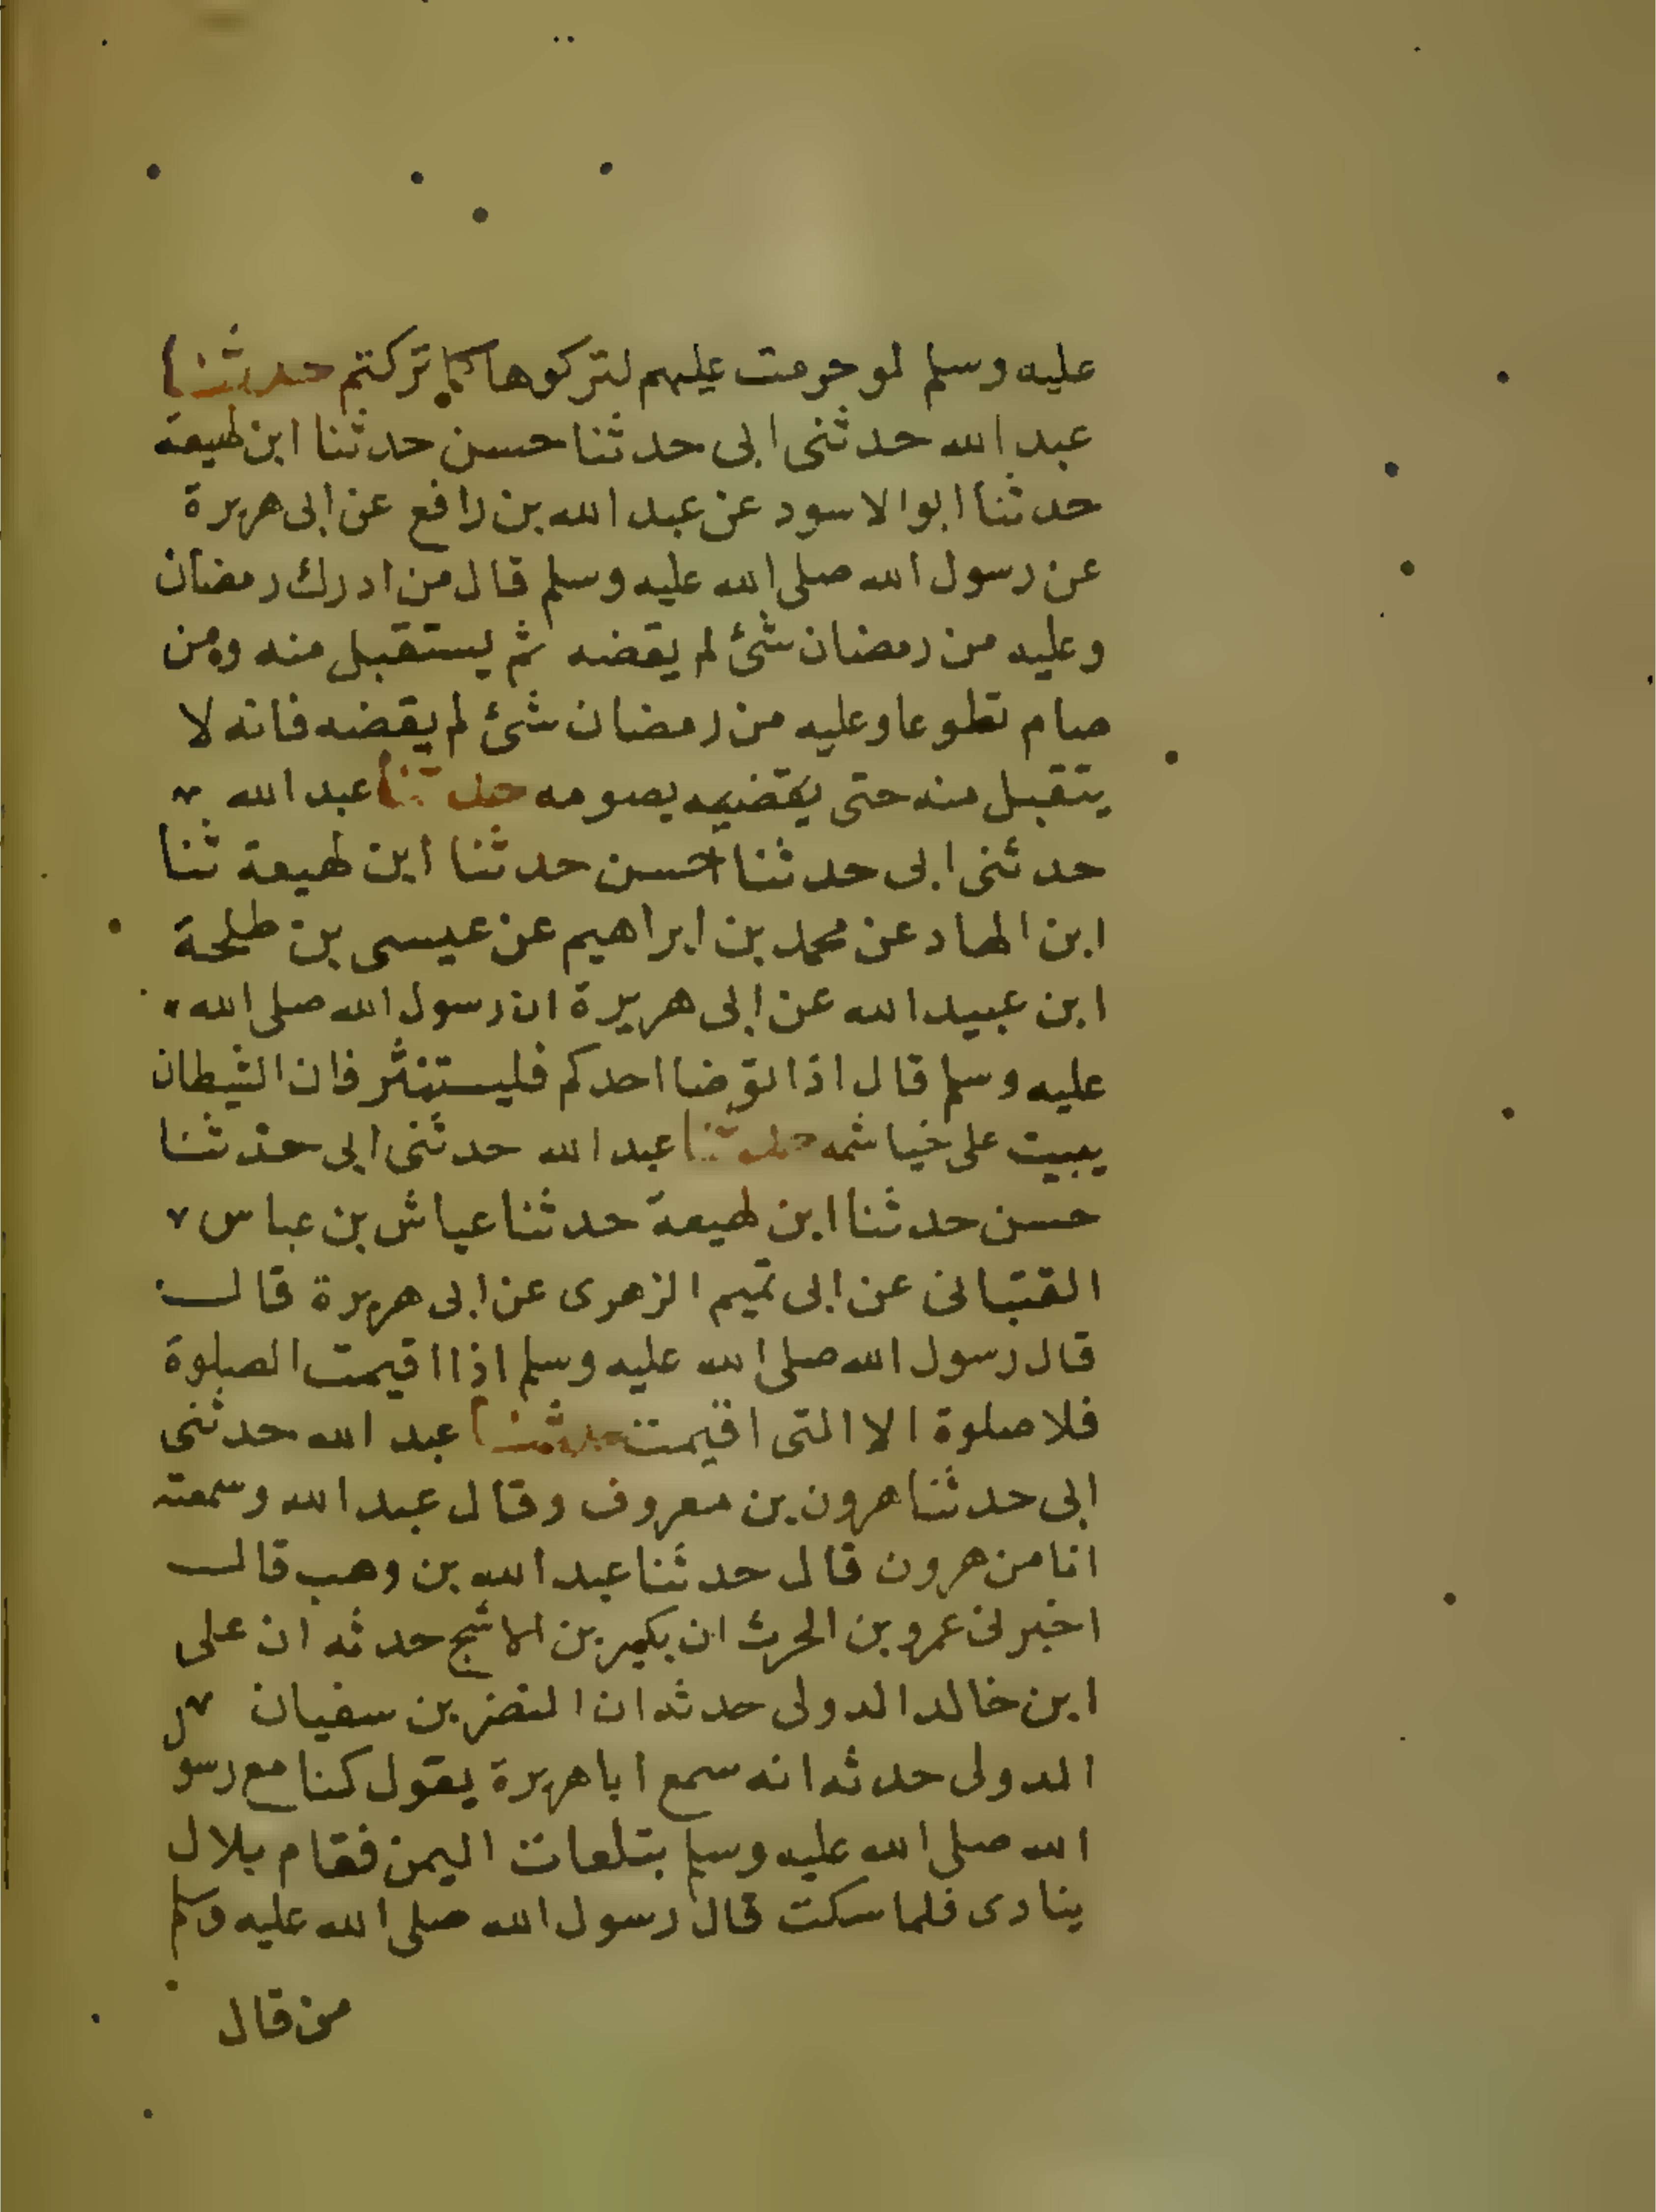 عليه وسلم لو حرمت عليهم لتركوها كما تركتم حدثنا
عبد الله حدثنى ابى حدثنا حسن حدثنا ابن لهيعة
حدثنا ابو الاسود عن عبد الله بن رافع عن ابى هريرة
عن رسول الله صلى الله عليه وسلم قال من ادرك رمضان
وعليه من رمضان شئ لم يقضه ثم يستقبل منه ومن
صام تطوعا وعليه من رمضان شئ لم يقضه فانه لا
يتقبل منه حتى يقضيه يصومه حدثنا عبد الله
حدثنى ابى حدثنا حسن حدثنا ابن لهيعة ثنا
ابن الهاد عن محمد بن ابراهيم عن عيسى بن طلحة
ابن عبيد الله عن ابى هريرة ان رسول الله صلى الله
عليه وسلم قال اذا توضا احدكم فليستنثر فان الشيطان
يبيت على خياشمه حدثنا عبد الله حدثنى ابى حدثنا
حسن حدثنا ابن لهيعة حدثنا عياش بن عباس
القتبانى عن ابى تميم الزهرى عن ابى هريرة قال
قال رسول الله صلى الله عليه وسلم اذا اقيمت الصلوة
فلا صلوة الا التى اقيمت حدثنا عبد الله حدثنى
ابى حدثنا هرون بن معروف وقال عبد الله وسمعته
انا من هرون قال حدثنا عبد الله بن وهب قال
اخبرنى عمرو بن الحرث ان بكير بن الاشج حدثه ان على
ابن خالد الدولى حدثه ان النضر بن سفيان
الدولى حدثه انه سمع ابا هريرة يقول كنا مع رسول
الله صلى الله عليه وسلم بتلعات اليمن فقام بلال
ينادى فلما سكت قال رسول الله صلى الله عليه وسلم
من قال